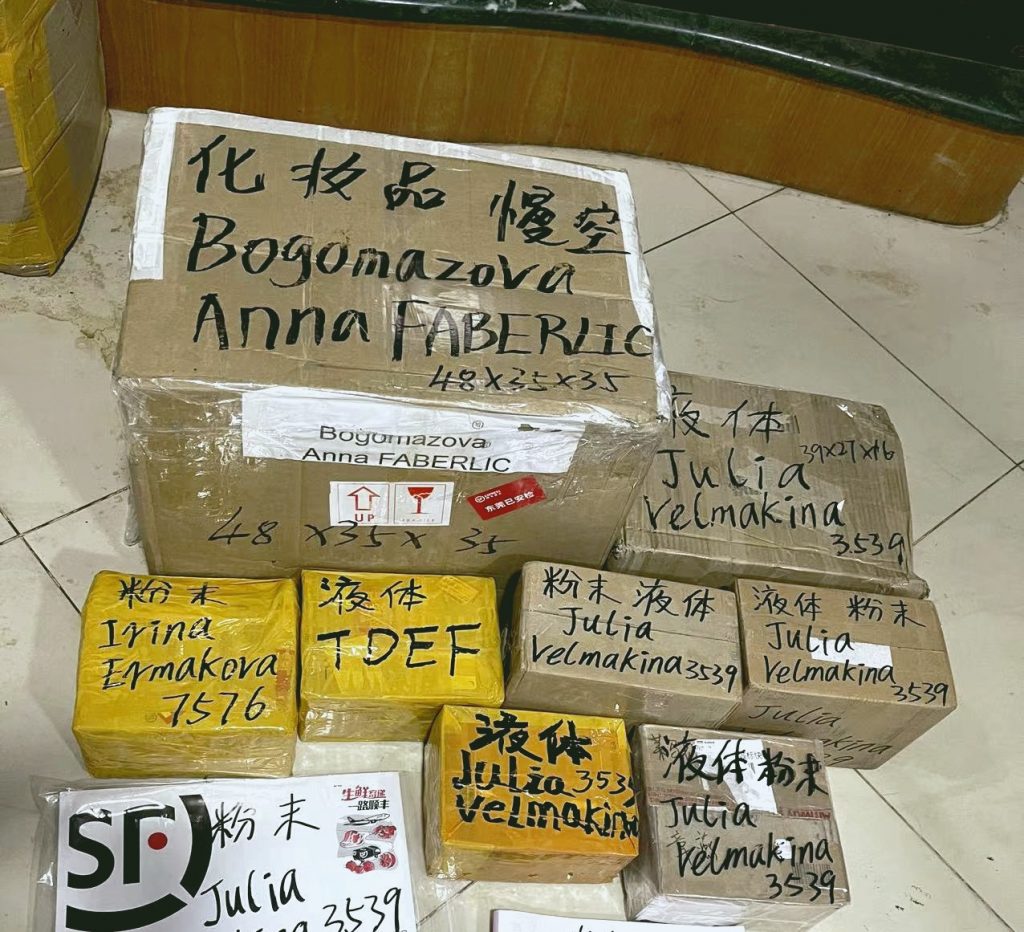 化妆品 慢空
Bogomazova
Anna FABERLIC
48×35×35
Bogomazova
Anna FABERLIC
UP
东莞已安检
48×35×35
液体
39×27×16
Julia
Velmakina
3539
粉末
Irina
Ermakova
7576
液体
TDEF
粉末液体
Julia
Velmakina 3539
液体 粉末
Julia
Velmakina
3539
Julia
Velmakina
液体
Julia 3539
Velmakina
液体粉末
Julia
Velmakina
3539
SF
粉末
生鲜
一路顺丰
Julia
3539